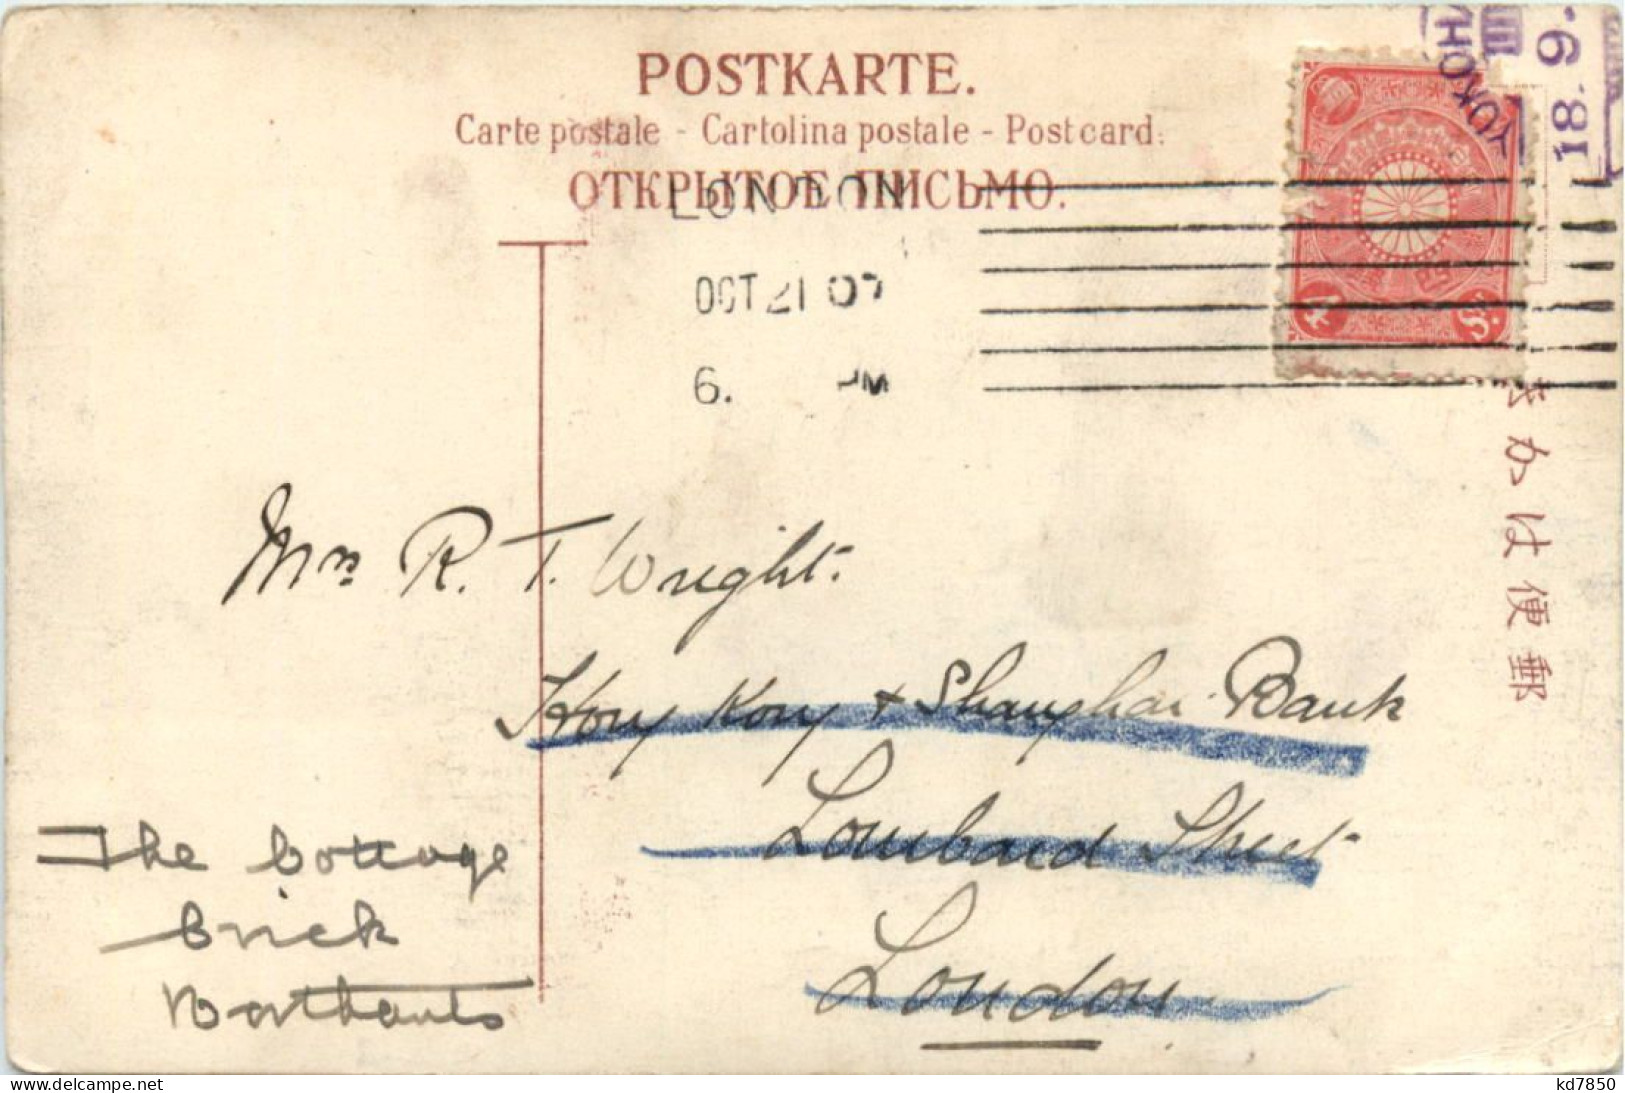 POSTKARTE.
Carte postale - Cartolina postale - Post card.
ОТКРЫТОЕ ПИСЬМО.
LONDON
OCT 21 07
6. PM
18. 9.
4 S.
きかは便郵
Mrs R. T. Wright.
Hong Kong & Shanghai Bank
Lombard Street
London
The Cottage
Brick
Northants
kd7850